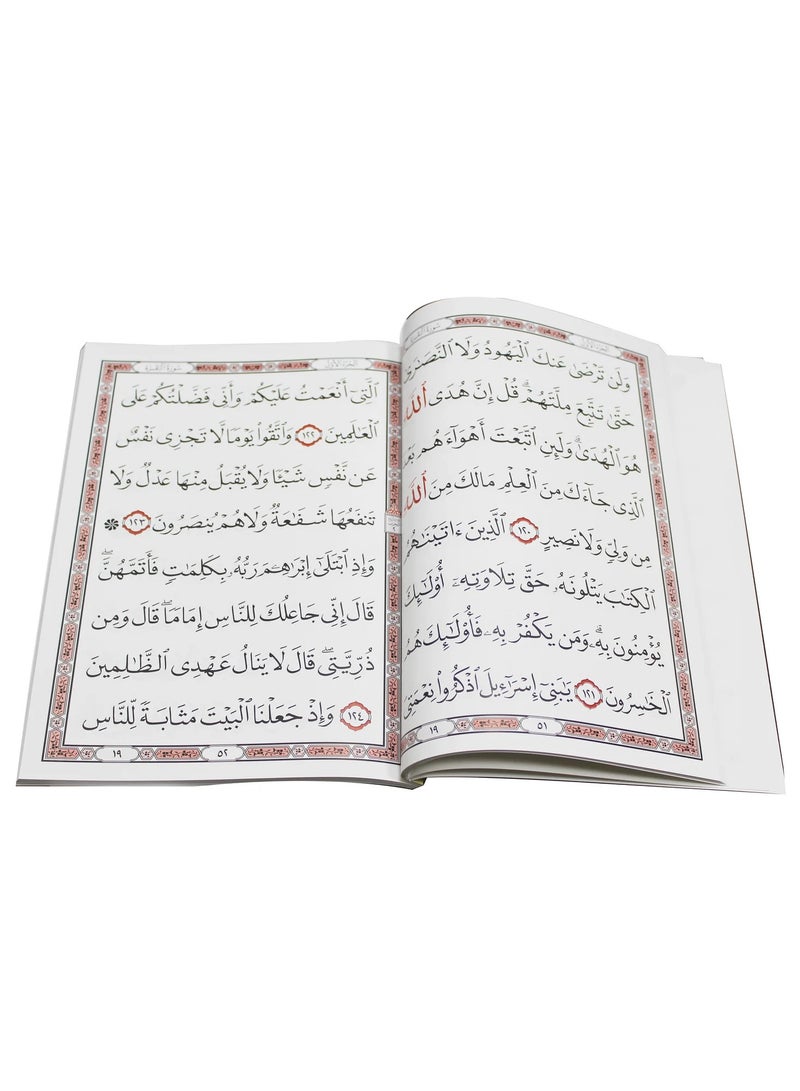 الجزء الأول
سورة البقرة
وَلَن تَرْضَىٰ عَنكَ ٱلْيَهُودُ وَلَا ٱلنَّصَٰرَىٰ
حَتَّىٰ تَتَّبِعَ مِلَّتَهُمْ ۗ قُلْ إِنَّ هُدَى ٱللَّهِ
هُوَ ٱلْهُدَىٰ ۗ وَلَئِنِ ٱتَّبَعْتَ أَهْوَآءَهُم
ٱلَّذِى جَآءَكَ مِنَ ٱلْعِلْمِ مَا لَكَ مِنَ ٱللَّهِ
مِن وَلِىٍّ وَلَا نَصِيرٍ ١٢٠ ٱلَّذِينَ ءَاتَيْنَٰهُمُ
ٱلْكِتَٰبَ يَتْلُونَهُۥ حَقَّ تِلَاوَتِهِۦٓ أُو۟لَٰٓئِكَ
يُؤْمِنُونَ بِهِۦ ۗ وَمَن يَكْفُرْ بِهِۦ فَأُو۟لَٰٓئِكَ هُمُ
ٱلْخَٰسِرُونَ ١٢١ يَٰبَنِىٓ إِسْرَٰٓءِيلَ ٱذْكُرُوا۟ نِعْمَتِىَ
٥١
١٩
الجزء الأول
سورة البقرة
ٱلَّتِىٓ أَنْعَمْتُ عَلَيْكُمْ وَأَنِّى فَضَّلْتُكُمْ عَلَى
ٱلْعَٰلَمِينَ ١٢٢ وَٱتَّقُوا۟ يَوْمًا لَّا تَجْزِى نَفْسٌ
عَن نَّفْسٍ شَيْـًٔا وَلَا يُقْبَلُ مِنْهَا عَدْلٌ وَلَا
تَنفَعُهَا شَفَٰعَةٌ وَلَا هُمْ يُنصَرُونَ ١٢٣ ۞
وَإِذِ ٱبْتَلَىٰٓ إِبْرَٰهِـۧمَ رَبُّهُۥ بِكَلِمَٰتٍ فَأَتَمَّهُنَّ ۖ
قَالَ إِنِّى جَاعِلُكَ لِلنَّاسِ إِمَامًا ۖ قَالَ وَمِن
ذُرِّيَّتِى ۖ قَالَ لَا يَنَالُ عَهْدِى ٱلظَّٰلِمِينَ
١٢٤ وَإِذْ جَعَلْنَا ٱلْبَيْتَ مَثَابَةً لِّلنَّاسِ
٥٢
١٩